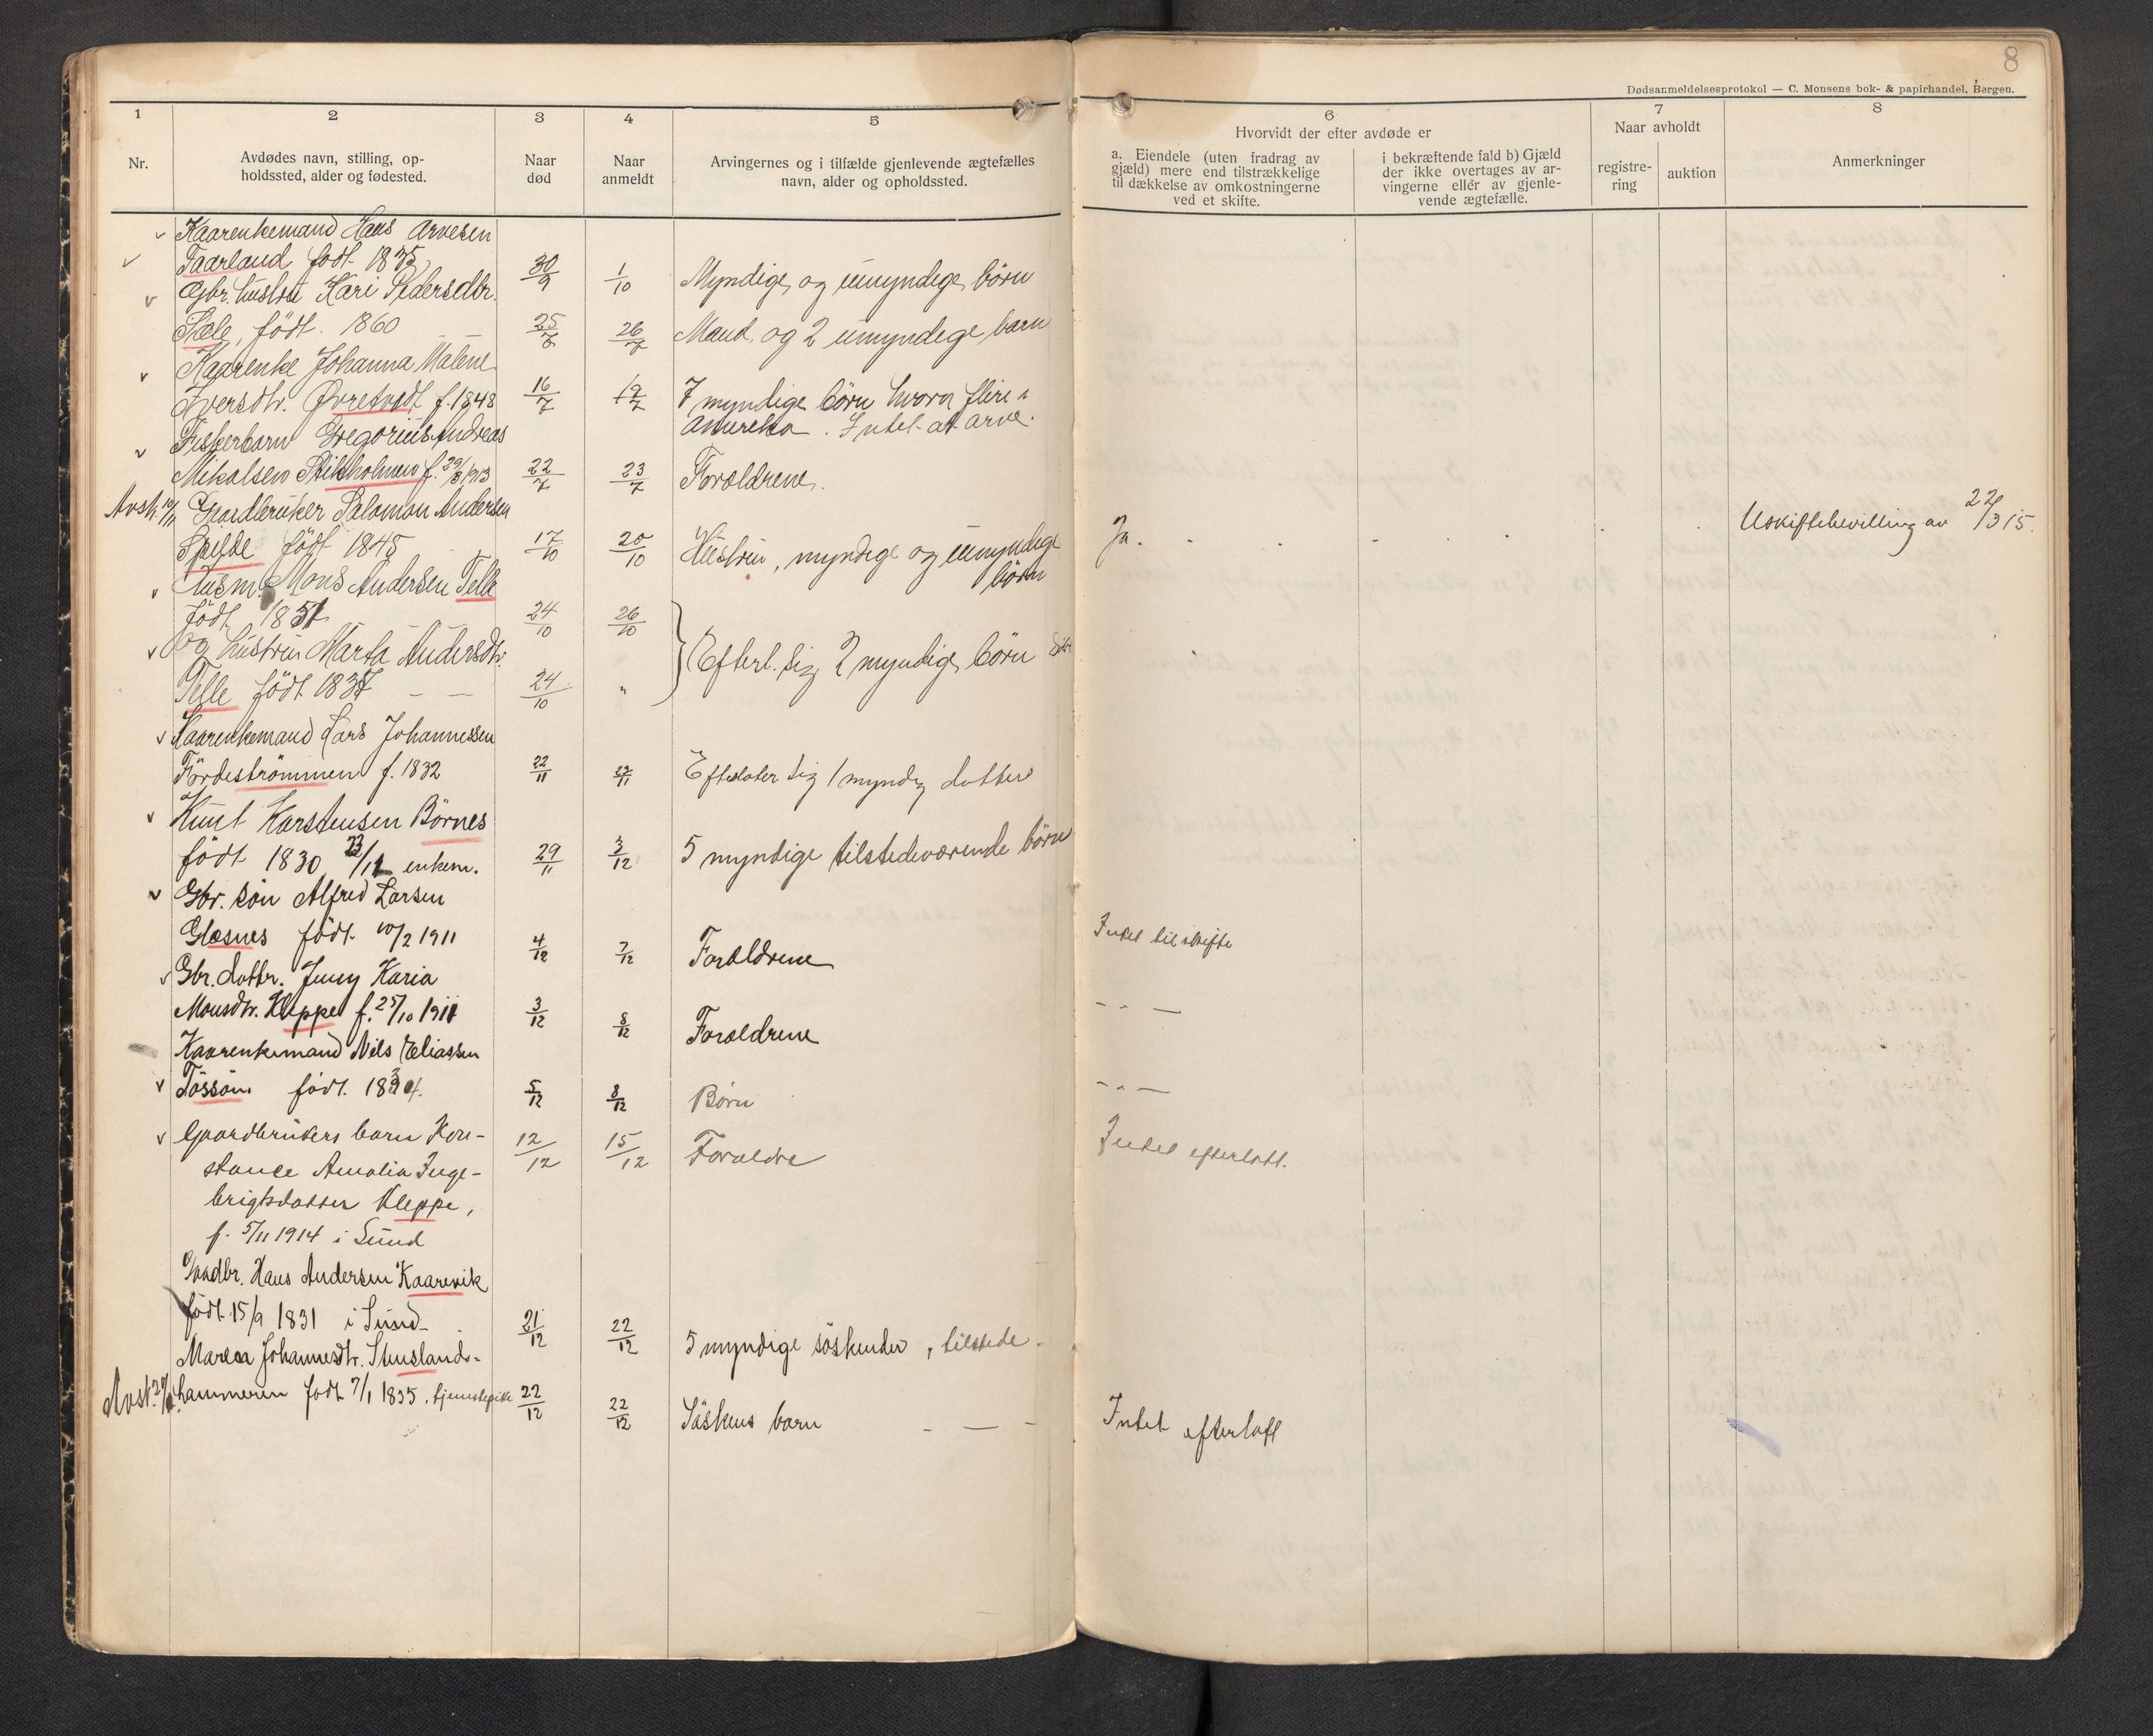 8
Dødsanmeldelsesprotokol — C. Monsens bok- & papirhandel, Bergen.
1 2 3 4 5 6 7 8
Nr.
Avdødes navn, stilling, op-
holdssted, alder og fødested.
Naar
død
Naar
anmeldt
Arvingernes og i tilfælde gjenlevende ægtefælles
navn, alder og opholdssted.
Hvorvidt der efter avdøde er
a. Eiendele (uten fradrag av
gjæld) mere end tilstrækkelige
til dækkelse av omkostningerne
ved et skifte.
i bekræftende fald b) Gjæld
der ikke overtages av ar-
vingerne eller av gjenle-
vende ægtefælle.
Naar avholdt
registre-
ring
auktion
Anmerkninger
Kaarenkemand Hans Arnesen
Taarland født 1835 30/9 1/10 Myndige og umyndige børn
Gbr. hustru Kari Pedersdtr.
Tæle, født. 1860 25/7 26/7 Mand og 2 umyndige barn
Kaarenke Johanna Malene
Iversdtr. Øvretvedt f. 1848 16/7 7 myndige børn hvorav flere i
Amerika. Intet at arve.
Fiskerbarn Gregorius Andreas
Mikalsen Stikholmen f. 1913 22/7 23/7 Forældrene.
Gaardbruker Salomon Andersen
Spilde født 1845 17/10 20/10 Hustru, myndige og umyndige
børn
Ja.
Uskiftebevilling av 22/3 15.
Mons Andersen Telle
født 1851 24/10 26/10
og hustru Marta Andersdtr.
Telle født 1837 24/10 "
Efterl. sig 2 myndige børn
Kaarenkemand Lars Johannessen
Fördeströmmen f. 1832 22/11 Efterlater sig 1 myndig datter
Knut Karstensen Börnes
født 1830 23/11 enkem. 29/11 3/12 5 myndige tilstedeværende børn
Gbr. søn Alfred Larsen
Glesnes født 10/2 1911 4/12 7/12 Forældrene
Intet til skifte
Gbr. dottr. Jenny Karia
Monsdtr. Kleppe f. 25/10 1911 3/12 8/12 Forældrene
- " -
Kaarenkemand Nils Eliassen
Tössön født. 1834. 5/12 8/12 Börn
- " -
Gaardbrukers barn Kon-
stance Amalia Inge-
brigtsdatter Kleppe,
f. 5/11 1914 i Sund
12/12 15/12 Forældre
Intet efterlatt.
Gaardbr. Hans Andersen Kaarevik
født 15/9 1831 i Sund 21/12 22/12 5 myndige söskender, tilstede.
Maren Johannesdtr. Skuslands-
hammeren født 7/1 1835, tjenestepike 22/12 22/12 Söskens barn
Intet efterlatt